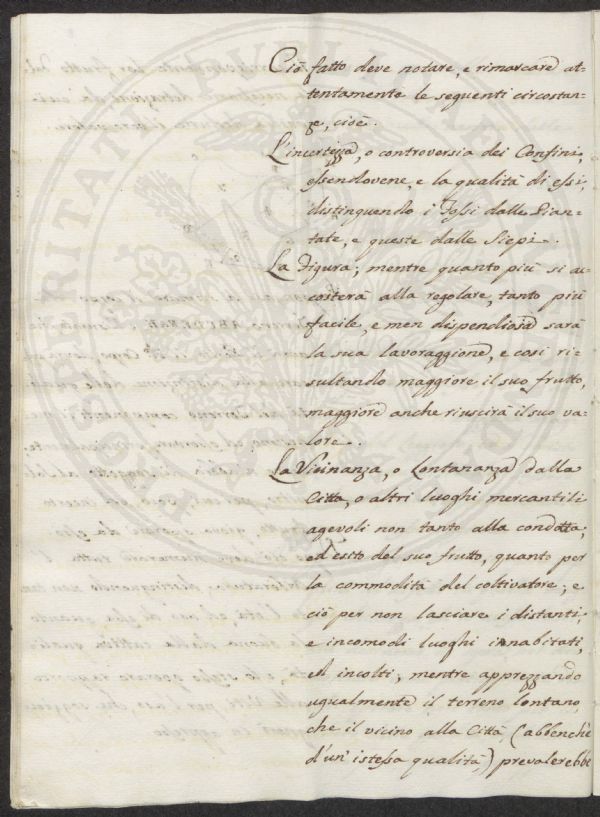 Ciò fatto deve notare, e rimarcare at=
tentamente le seguenti circostan=
ze, cioè.
L'incertezza, o controversia dei Confini,
essendovene, e la qualità di essi,
distinguendo i Fossi dalle Pian=
tate, e queste dalle Siepi.
La Figura; mentre quanto più si ac=
costerà alla regolare, tanto più
facile, e men dispendiosa sarà
la sua lavoraggione, e così ri=
sultando maggiore il suo frutto,
maggiore anche riuscirà il suo va=
lore.
La Vicinanza, o Lontananza dalla
Città, o altri luoghi mercantili
agevoli non tanto alla condotta,
ed esito del suo frutto, quanto per
la commodità del coltivatore; e
ciò per non lasciare i distanti,
e incomodi luoghi innabitati,
ed incolti; mentre apprezzando
ugualmente il terreno lontano,
che il vicino alla Città, (abbenchè
d'un' istessa qualità,) prevalerebbe